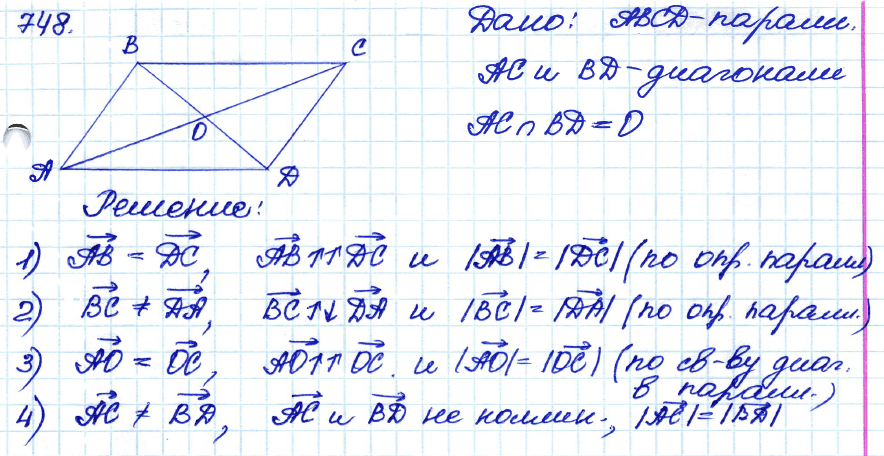 748.
Дано: ABCD-парали.
AC и BD-диагонали
AC ∩ BD = O
B
C
O
A
D
Решение:
1) AB = DC, AB ↑↑ DC и |AB| = |DC| (по опр. парали)
2) BC ≠ DA, BC ↑↓ DA и |BC| = |DA| (по опр. парали.)
3) AO = OC, AO ↑↑ OC. и |AO| = |OC| (по св-ву диаг.
в парали.)
4) AC ≠ BD, AC и BD не коллин., |AC| = |BD|